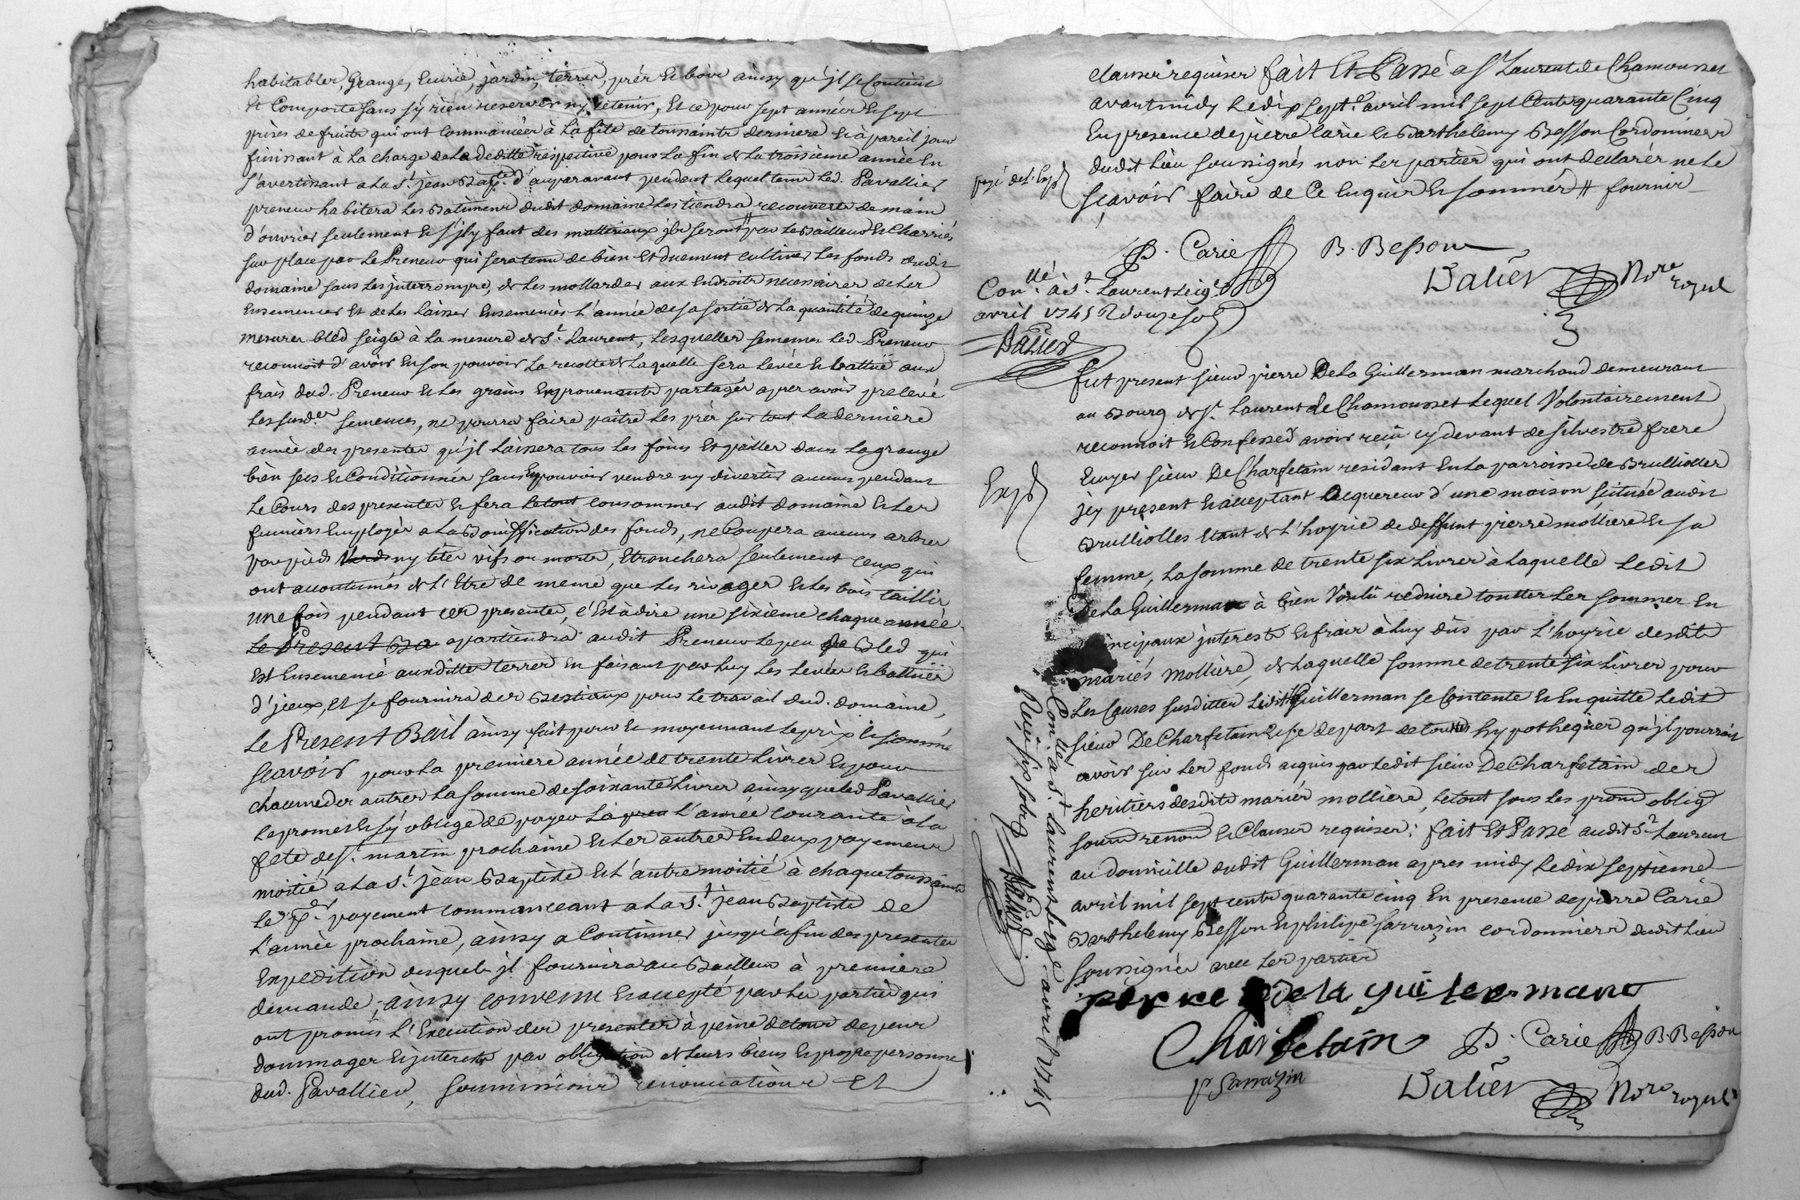 habitables, grange, écurie, jardin, terres, prés et bois ainsy qu'jl se Contient
et Comporte sans sÿ rien reserver ny retenir, Et ce pour sept années et sept
prises de fruits qui ont commancées à la fête de toussaints derniere et à pareil jour
finissant à la charge de la deditte respective pour la fin de la troisieme année en
s'avertissant a la St. jean Bapte. d'auparavant pendant lequel tems led. Pavallier
preneur habitera les Batiments dudit domaine les tiendra recouverts de main
d'ouvrier seulement et s'jl y faut des matteriaux jls seront # par le Bailleur et Charriés
sur place par le Preneur qui sera tenu de bien et duement cultiver les fonds dudit
domaine sans les jnterrompre, de les mollarder aux endroits necessaires de les
Ensemencer et de les laisser Ensemencés l'année de sa sortie de la quantité de quinze
mesures bled seigle à la mesure de St. Laurent, lesquelles semences led. Preneur
reconnoit d'avoir en son pouvoir la recolte de laquelle sera levée et battüe aux
frais dud. Preneur et les grains en provenants partagés apres avoir prelevé
les susdes. semences, ne pourra faire paitre les prés sur tout la derniere
année des presentes qu'jl laissera tous les foins et pailles dans la grange
bien secs et Conditionnés sans en pouvoir vendre ny divertir aucuns pendant
le Cours des presentes et fera le tout consommer audit domaine et les
fumiers employer a la Bonnification des fonds, ne Coupera aucuns arbres
par pieds ny têtes vifs ou morts, Etronchera seulement ceux qui
ont accoutumés de l'Etre de meme que les rivages et les bois taillis
une fois pendant ces presentes, c'Est à dire une sixieme chaque année
Le Present Ba apartiendra audit Preneur le peu de Bled qui
Est Ensemencé auxdittes terres en faisant par luy les levées et battües
d'jceux, et se fournira des Bestiaux pour le travail dud. domaine,
Le Present Bail ainsy fait pour et moyennant le prix et somme
sçavoir pour la premiere année de trente livres et pour
chacune des autres la somme de soixante livres ainsy que led Pavallier
le promet et s'ÿ oblige de payer la pres l'année courante a la
fête de St. martin prochaine et les autres en deux payements
moitié a la St. jean Baptiste et l'autre moitié à chaque toussaints
le per. payement commanceant a la St. jean Baptiste de
l'année prochaine, ainsy a Continuer jusqu'à fin des presentes
Expedition desquels jl fournira au Bailleur à premiere
demande, ainsy convenu et accepté par les parties qui
ont promis l'Execution des presentes à peine de tous depens
dommages et jnterests par obligation de leurs biens et propre personne
dud. Pavallier, soumissions renonciations et
clauses requises fait et Passé a St. Laurent de Chamousset
avant midy le dix septe. avril mil sept Cents quarante Cinq
En presence de pierre Carie et Barthelemy Besson Cordonniers
dudit lieu soussignés non les parties qui ont declarés ne le
sçavoir faire de ce enquis et sommés # fournis
payé de l. Exp
P. Carie B. Besson
Dalier Nore royal
Conllé. à St. Laurent le
avril 1745 R douze sols
Dalier
Fut present sieur pierre De la Guillerman marchand demeurant
au Bourg de St. Laurent de Chamousset lequel Volontairement
reconnoit et Confesse avoir reçu cy devant de silvestre frere
Ecuyer sieur De Charfetain residant en la parroisse de Brullioles
jcy present et acceptant Acquereur d'une maison scituée audit
Brullioles Etant de l'hoyrie de deffunt pierre molliere et sa
femme, la somme de trente six livres à laquelle ledit
De la Guillerman à bien Voulu reduire touttes les sommes en
principaux jnterests et frais à luy dûs par l'hoyrie desdits
mariés molliere, de laquelle somme de trente six livres pour
les Causes susdittes ledit Guillerman se Contente et en quitte ledit
sieur De Charfetain et se depart de touts hypotheques qu'jl pourroit
avoir sur les fonds acquis par ledit sieur De Charfetain des
heritiers desdits mariés molliere, le tout sous les prom oblig
soum renon et Clauses requises; fait et Passé audit St. Laurent
au domicille dudit Guillerman apres midy le dix septieme
avril mil sept cents quarante cinq en presence de pierre Carie
Barthelemy Besson et philipe sarrazin cordonniers dudit lieu
soussignés avec les parties
Expd
Conllé à St. Laurent le avril 1745
Reçu six sols Dalier
pierre de la guillermans
Charfetain P. Carie B. Besson
P Sarrazin Dalier Nore royal